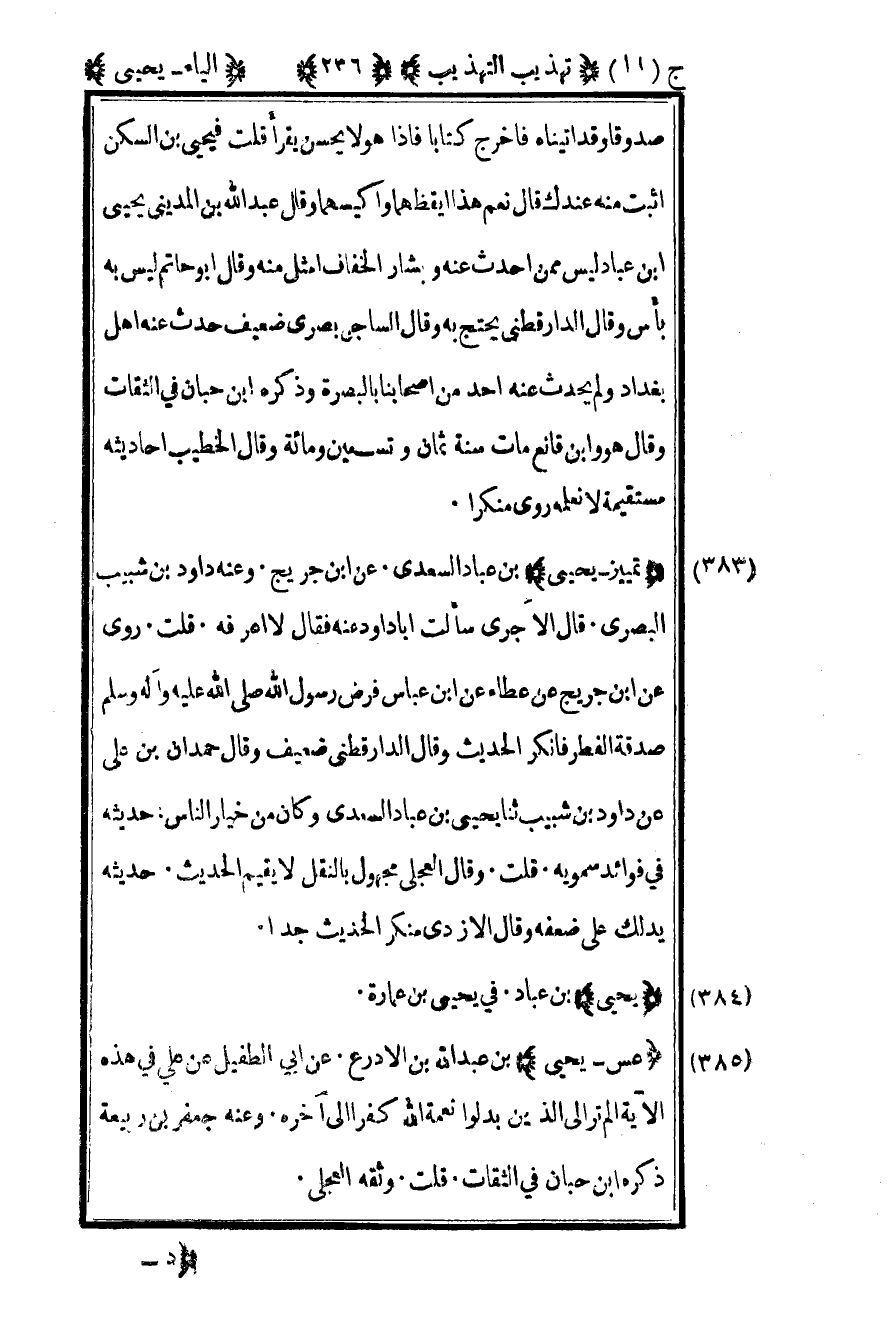 ج (١١) ﴿ تهذيب التهذيب ﴾ ﴿ ٢٣٦ ﴾ ﴿ الياء ـ يحيى ﴾
صدوقا وقد اتيناه فاخرج كتابا فاذا هو لا يحسن يقرأ قلت فيحيى بن السكن
اثبت منه عندك قال نعم هذا ايقظهما واكيسهما وقال عبد الله بن المديني يحيى
ابن عباد ليس ممن احدث عنه و بشار الخفاف امثل منه وقال ابو حاتم ليس به
بأس وقال الدارقطنى يحتج به وقال الساجى بصرى ضعيف حدث عنه اهل
بغداد ولم يحدث عنه احد من اصحابنا بالبصرة وذكره ابن حبان في الثقات
وقال هو وابن قانع مات سنة ثمان و تسعين ومائة وقال الخطيب احاديثه
مستقيمة لا نعلمه روى منكرا ٠
(٣٨٣) ﴿ تمييز ـ يحيى ﴾ بن عباد السعدى ٠ عن ابن جريج ٠ وعنه داود بن شبيب
البصرى ٠ قال الآجرى سألت ابا داود عنه فقال لا اعرفه ٠ قلت ٠ روى
عن ابن جريج عن عطاء عن ابن عباس فرض رسول الله صلى الله عليه وآله وسلم
صدقة الفطر فانكر الحديث وقال الدارقطنى ضعيف وقال حمدان بن على
عن داود بن شبيب ثنا يحيى بن عباد السعدى وكان من خيار الناس : حديثه
في فوائد سمويه ٠ قلت ٠ وقال العجلى مجهول بالنقل لا يقيم الحديث ٠ حديثه
يدلك على ضعفه وقال الازدى منكر الحذيث جدا ٠
(٣٨٤) ﴿ يحيى ﴾ بن عباد ٠ في يحيى بن عمارة ٠
(٣٨٥) ﴿ عس ـ يحيى ﴾ بن عبد الله بن الادرع ٠ عن ابي الطفيل عن علي في هذه
الآية الم تر الى الذين بدلوا نعمة الله كفرا الى آخره ٠ وعنه جعفر بن ربيعة
ذكره ابن حبان في الثقات ٠ قلت ٠ وثقه العجلى ٠
﴿ د ـ